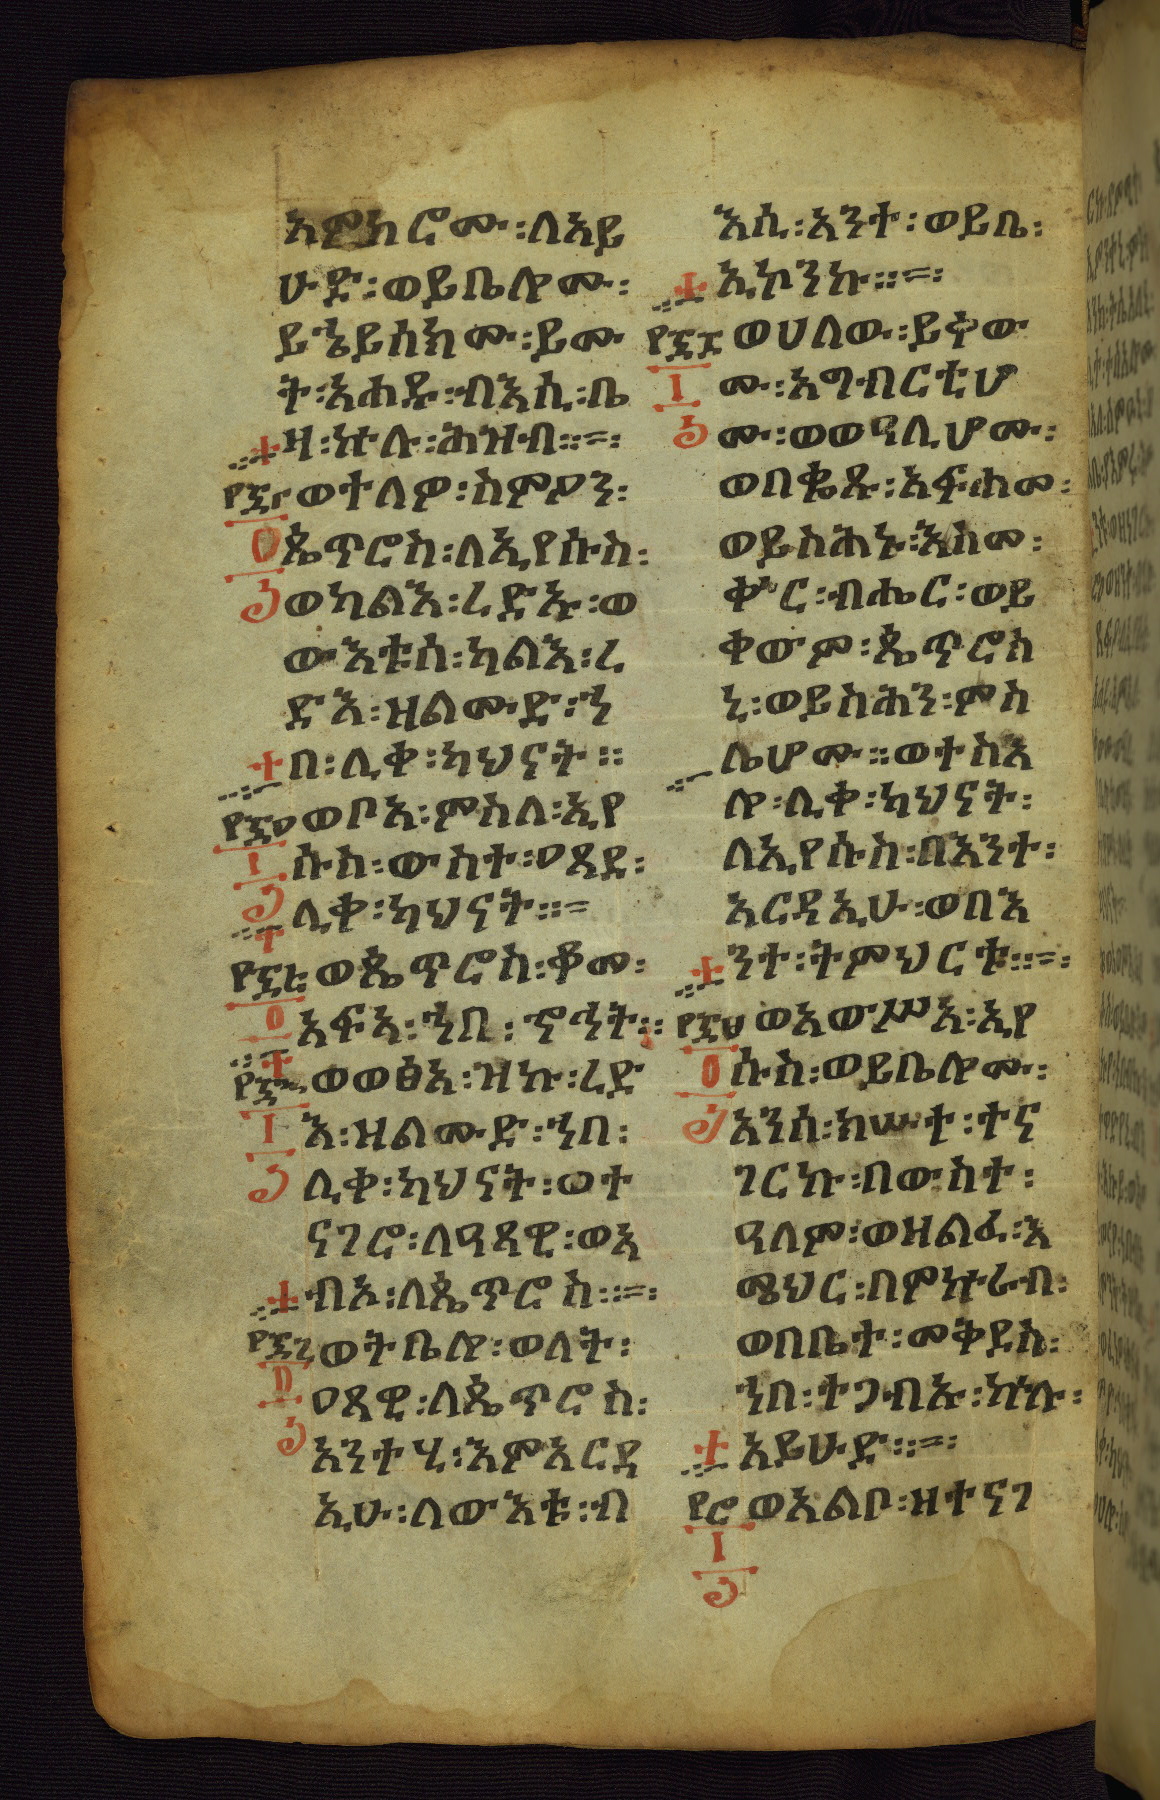 አምክሮሙ፡ለአይ
ሁድ፡ወይቤሎሙ፡
ይኄይሰክሙ፡ይሙ
ት፡አሐዱ፡ብእሲ፡ቤ
ዛ፡ኵሉ፡ሕዝብ።=፡
ወተለዎ፡ስምዖን፡
ጴጥሮስ፡ለኢየሱስ፡
ወካልእ፡ረድኡ፡ወ
ውእቱሰ፡ካልእ፡ረ
ድእ፡ዝልሙድ፡ኀ
በ፡ሊቀ፡ካህናት።
ወቦአ፡ምስለ፡ኢየ
ሱስ፡ውስተ፡ዐጸደ፡
ሊቀ፡ካህናት።=
ወጴጥሮስ፡ቆመ፡
አፍአ፡ኀበ፡ኆኅት።
ወወፅአ፡ዝኩ፡ረድ
እ፡ዘልሙድ፡ኀበ፡
ሊቀ፡ካህናት፡ወተ
ናገሮ፡ለዓጻዊ፡ወአ
ብኦ፡ለጴጥሮስ።=፡
ወትቤሎ፡ወለት፡
ዐጻዊ፡ለጴጥሮስ፡
አንተሂ፡እምአርዳ
ኢሁ፡ለውእቱ፡ብ
እሲ፡አንተ፡ወይቤ፡
ኢኮንኩ።=፡
ወሀለው፡ይቀው
ሙ፡አግብርቲሆ
ሙ፡ወወዓሊሆሙ፡
ወበቈጹ፡አፍሐመ፡
ወይስሕኑ፡እስመ፡
ቍር፡ብሔር፡ወይ
ቀውም፡ጴጥሮስ
ኒ፡ወይስሕን፡ምስ
ሌሆሙ።ወተስእ
ሎ፡ሊቀ፡ካህናት፡
ለኢየሱስ፡በእንተ፡
አርዳኢሁ፡ወበእ
ንተ፡ትምህርቱ።=፡
ወአውሥአ፡ኢየ
ሱስ፡ወይቤሎሙ፡
አንሰ፡ክሡተ፡ተና
ገርኩ፡በውስተ፡
ዓለም፡ወዘልፈ፡እ
ሜህር፡በምኵራብ፡
ወበቤተ፡መቅደስ፡
ኀበ፡ተጋብኡ፡ኵሉ፡
አይሁድ።=፡
ወአልቦ፡ዘተናገ